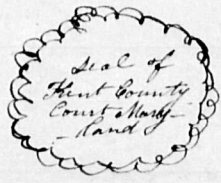 Seal of
Kent County
Court Mary-
land